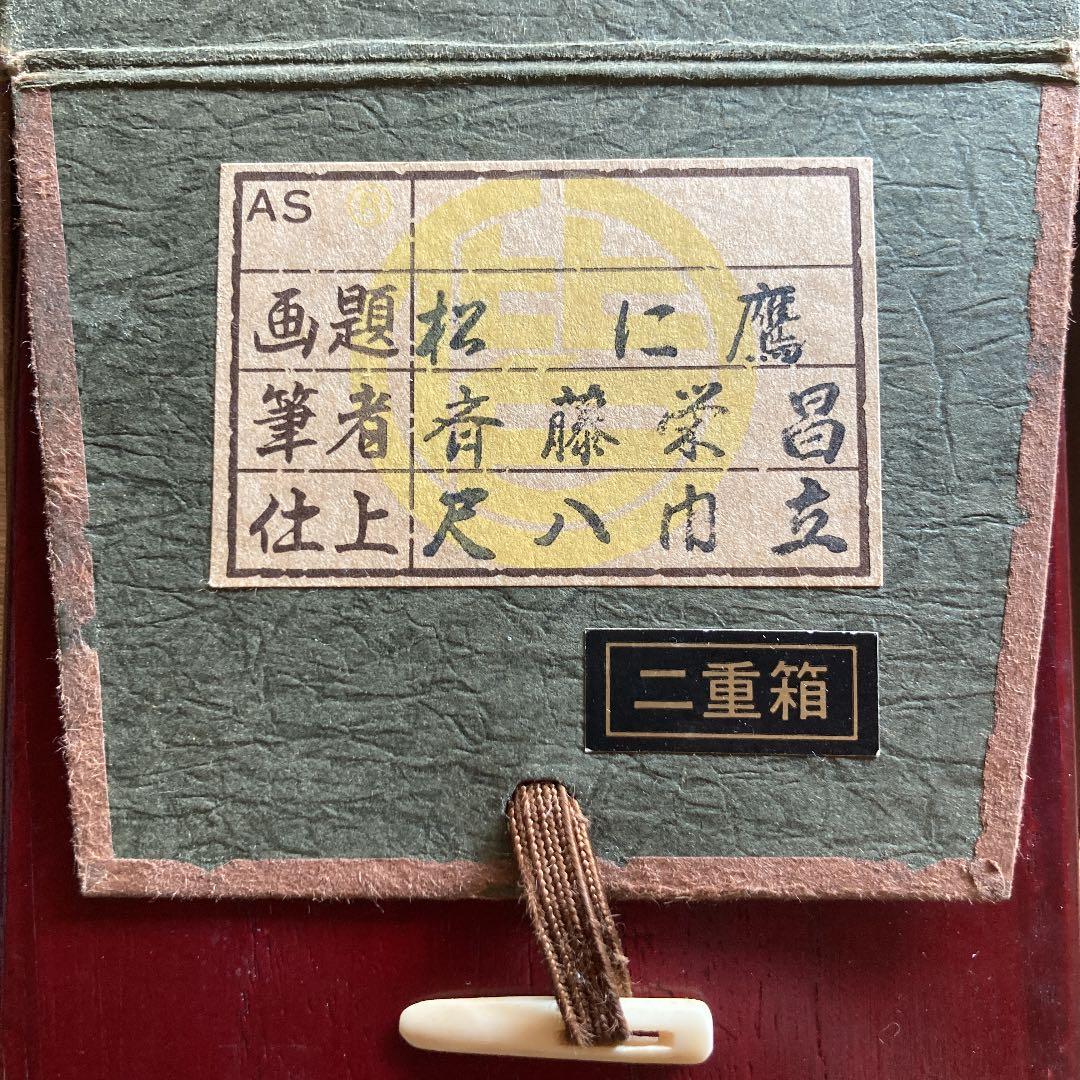 AS
画題 松に鷹
筆者 斉藤栄昌
仕上 尺八巾立
二重箱